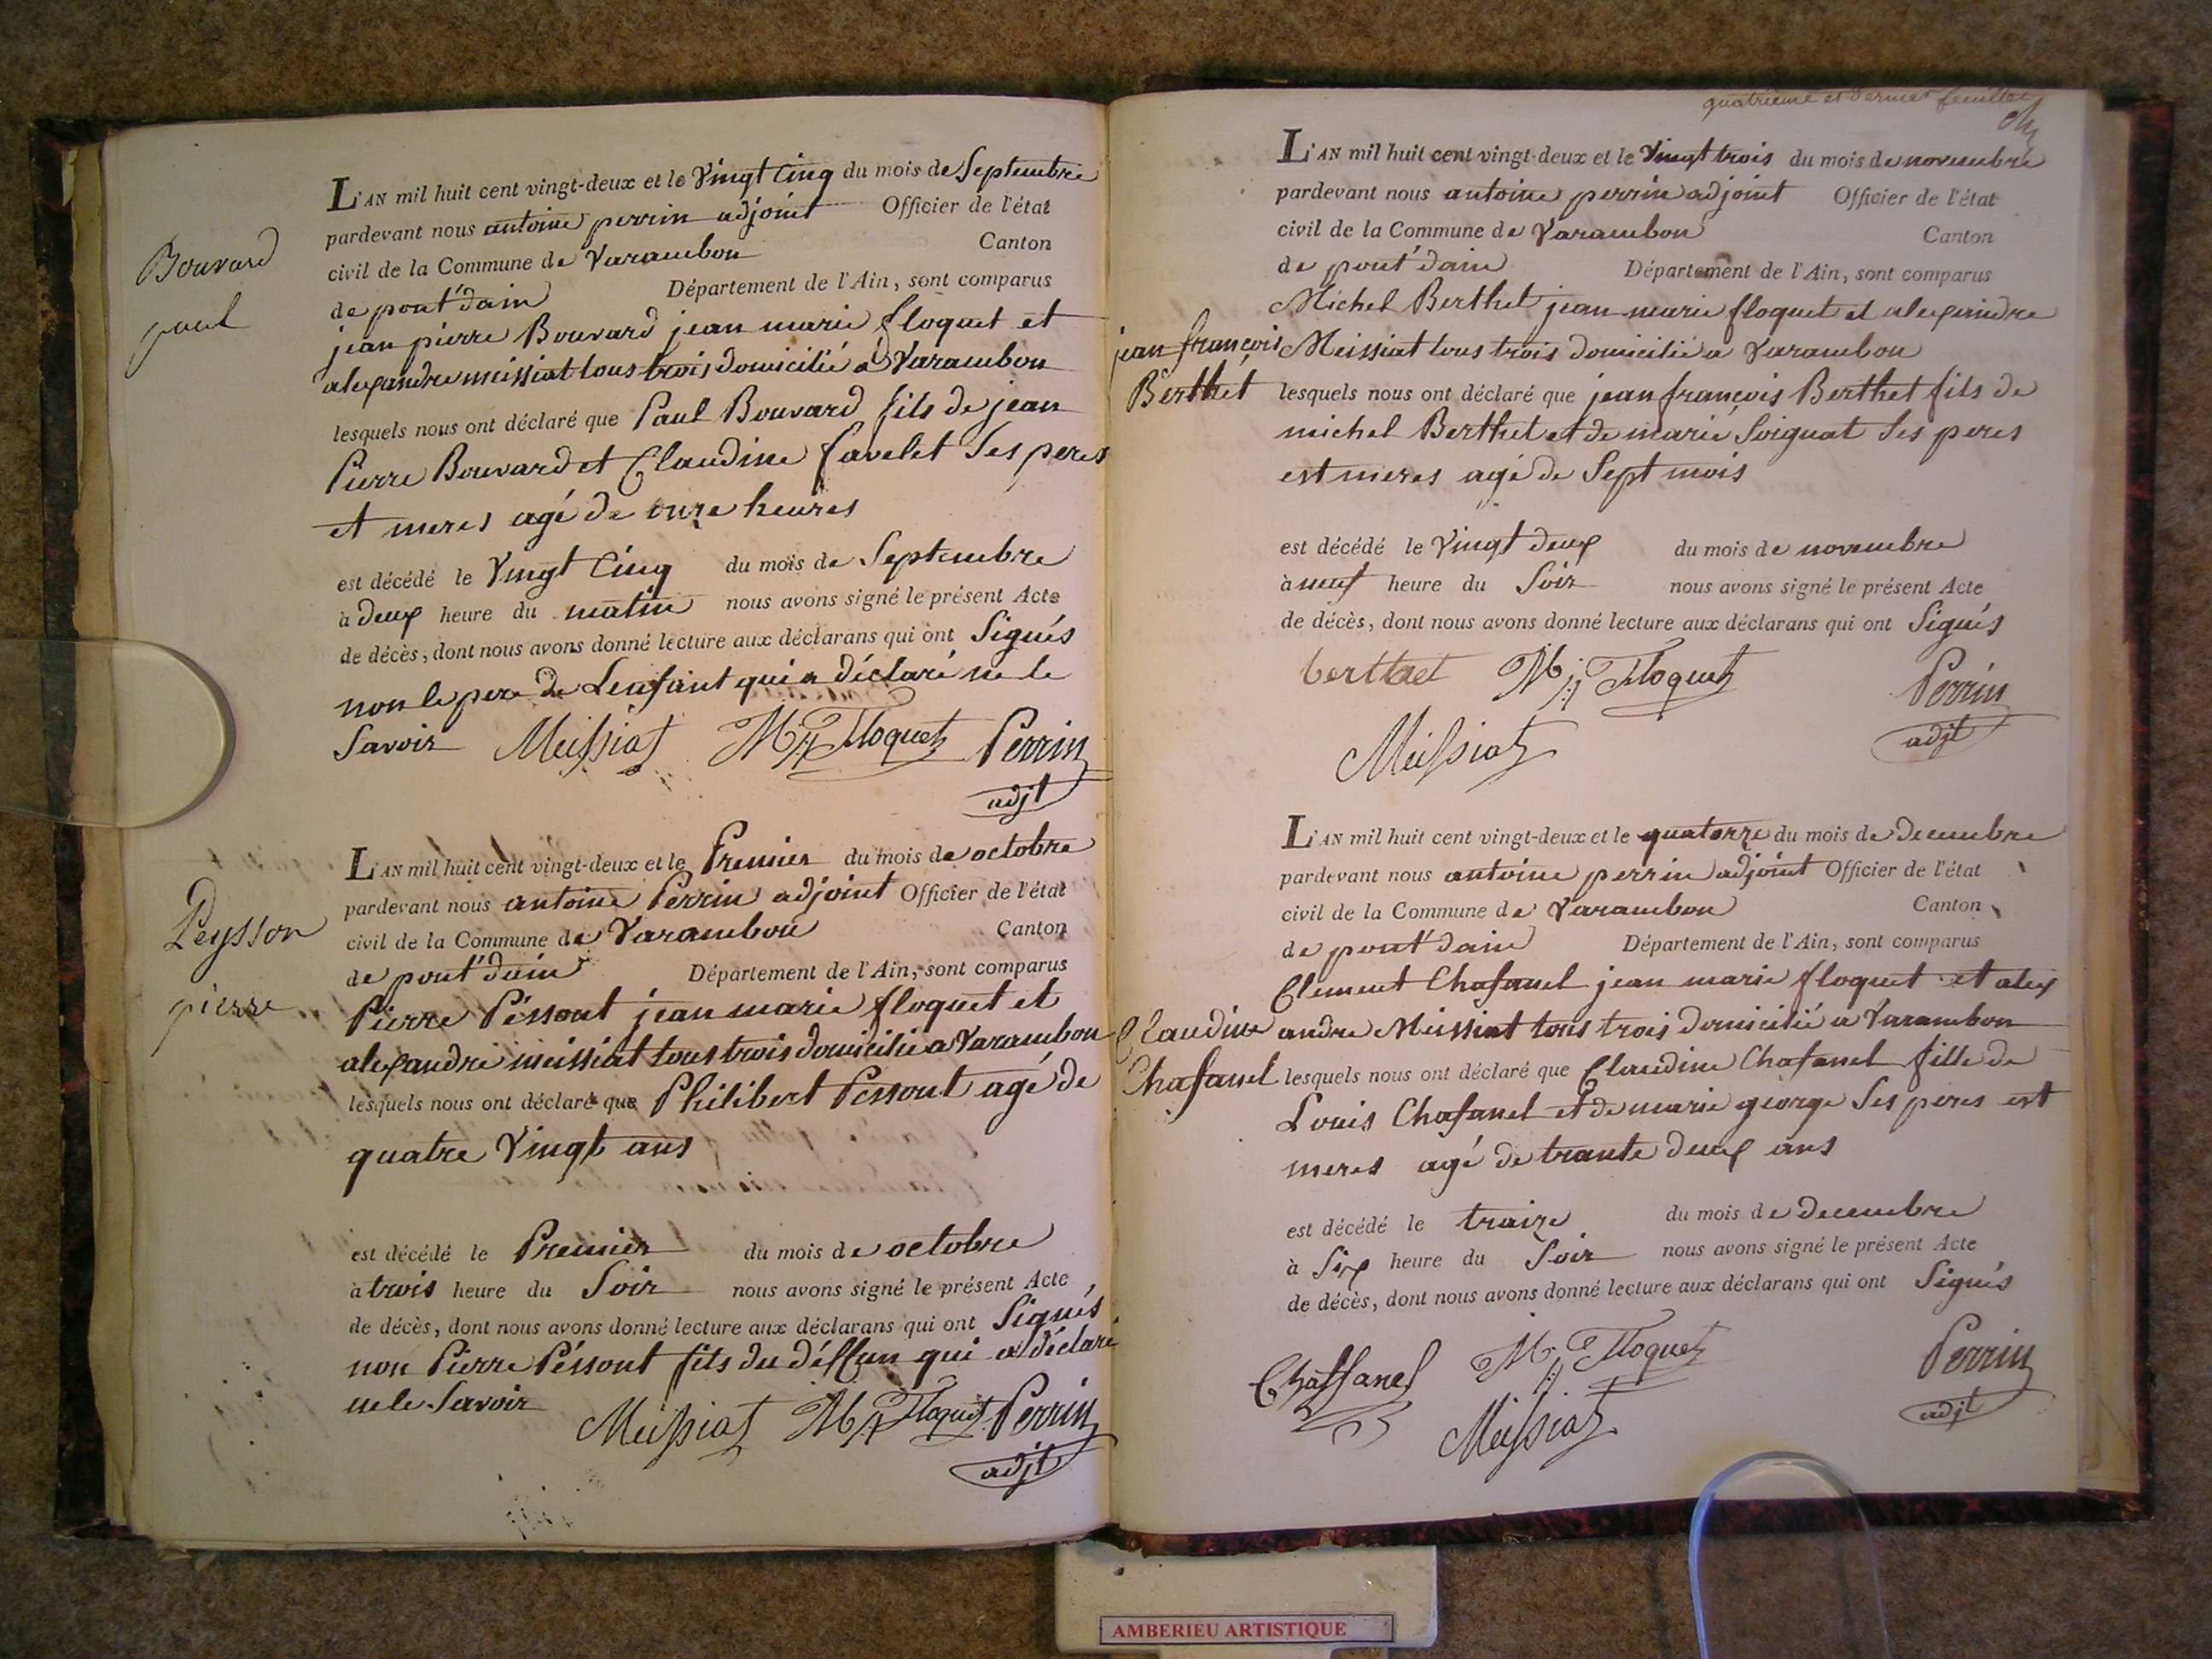 Bouvard
paul
L'AN mil huit cent vingt-deux et le Vingt Cinq du mois de Septembre
pardevant nous antoine perrin adjoint Officier de l'état
civil de la Commune de Varambon Canton
de pont d'ain Département de l'Ain, sont comparus
jean pierre Bouvard jean marie floquet et
alexandre meissiat tous trois domicilié a Varambon
lesquels nous ont déclaré que Paul Bouvard fils de jean
Pierre Bouvard et Claudine favelet Ses peres
et meres agé de onze heures
est décédé le Vingt Cinq du mois de Septembre
à deux heure du matin nous avons signé le présent Acte
de décès, dont nous avons donné lecture aux déclarans qui ont Signés
non le pere de Lenfant qui a déclaré ne le
Savoir Meissiat JM Floquet Perrin
adjt
Peysson
pierre
L'AN mil huit cent vingt-deux et le Premier du mois de octobre
pardevant nous antoine Perrin adjoint Officier de l'état
civil de la Commune de Varambon Canton
de pont d'ain Département de l'Ain, sont comparus
Pierre Péssont jean marie floquet et
alexandre meissiat tous trois domicilié a Varambon
lesquels nous ont déclaré que Philibert Péssont agé de
quatre Vingt ans
est décédé le Premier du mois de octobre
à trois heure du Soir nous avons signé le présent Acte
de décès, dont nous avons donné lecture aux déclarans qui ont Signés
non Pierre Péssont fils du déffun qui a déclaré
ne le Savoir
Meissiat JM Floquet Perrin
adjt
quatrieme et dernier feuillet
L'AN mil huit cent vingt-deux et le Vingt trois du mois de novembre
pardevant nous antoine perrin adjoint Officier de l'état
civil de la Commune de Varambon Canton
de pont d'ain Département de l'Ain, sont comparus
Michel Berthet jean marie floquet et alexandre
Meissiat tous trois domicilié a Varambon
jean françois
Berthet
lesquels nous ont déclaré que jean françois Berthet fils de
michel Berthet et de marie Soignat Ses peres
est meres agé de Sept mois
est décédé le Vingt deux du mois de novembre
à neuf heure du Soir nous avons signé le présent Acte
de décès, dont nous avons donné lecture aux déclarans qui ont Signés
berthet JM Floquet Perrin
Meissiat adjt
L'AN mil huit cent vingt-deux et le quatorze du mois de decembre
pardevant nous antoine perrin adjoint Officier de l'état
civil de la Commune de Varambon Canton
de pont d'ain Département de l'Ain, sont comparus
Clement Chafanel jean marie floquet et alex
andre Meissiat tous trois domicilié a Varambon
Claudine
Chafanel
lesquels nous ont déclaré que Claudine Chafanel fille de
Louis Chafanel et de marie george Ses peres est
meres agé de trante deux ans
est décédé le traize du mois de decembre
à Six heure du Soir nous avons signé le présent Acte
de décès, dont nous avons donné lecture aux déclarans qui ont Signés
Chaffanel JM Floquet Perrin
Meissiat adjt
AMBERIEU ARTISTIQUE